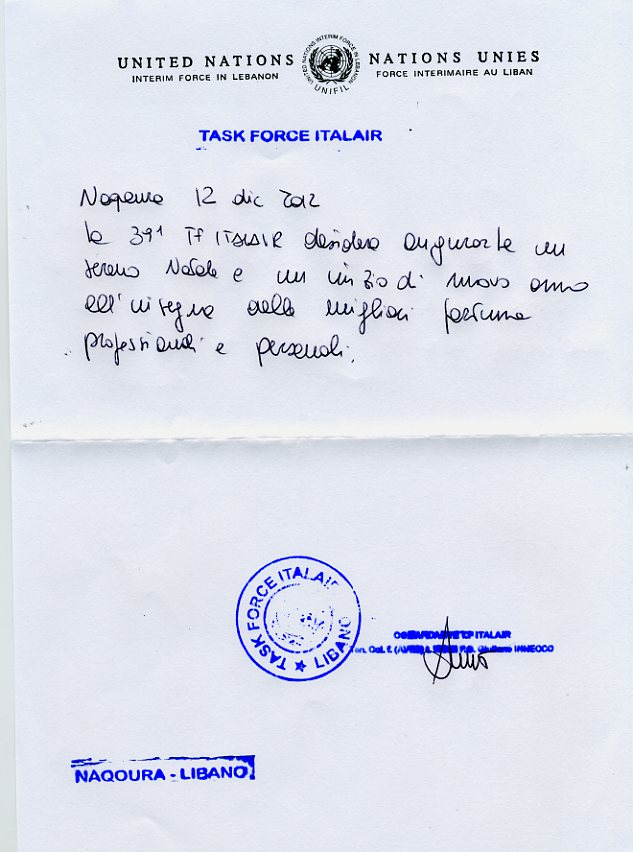 UNITED NATIONS
INTERIM FORCE IN LEBANON
UNITED NATIONS INTERIM FORCE IN LEBANON
UNIFIL
NATIONS UNIES
FORCE INTERIMAIRE AU LIBAN
TASK FORCE ITALAIR
Naqoura 12 dic 2012
la 39ª TF ITALAIR desidera augurarle un
sereno Natale e un inizio di nuovo anno
all'insegna delle migliori fortune
professionali e personali.
TASK FORCE ITALAIR
LIBANO
COMANDANTE TF ITALAIR
Ten. Col. Giuliano INNECCO
NAQOURA - LIBANO